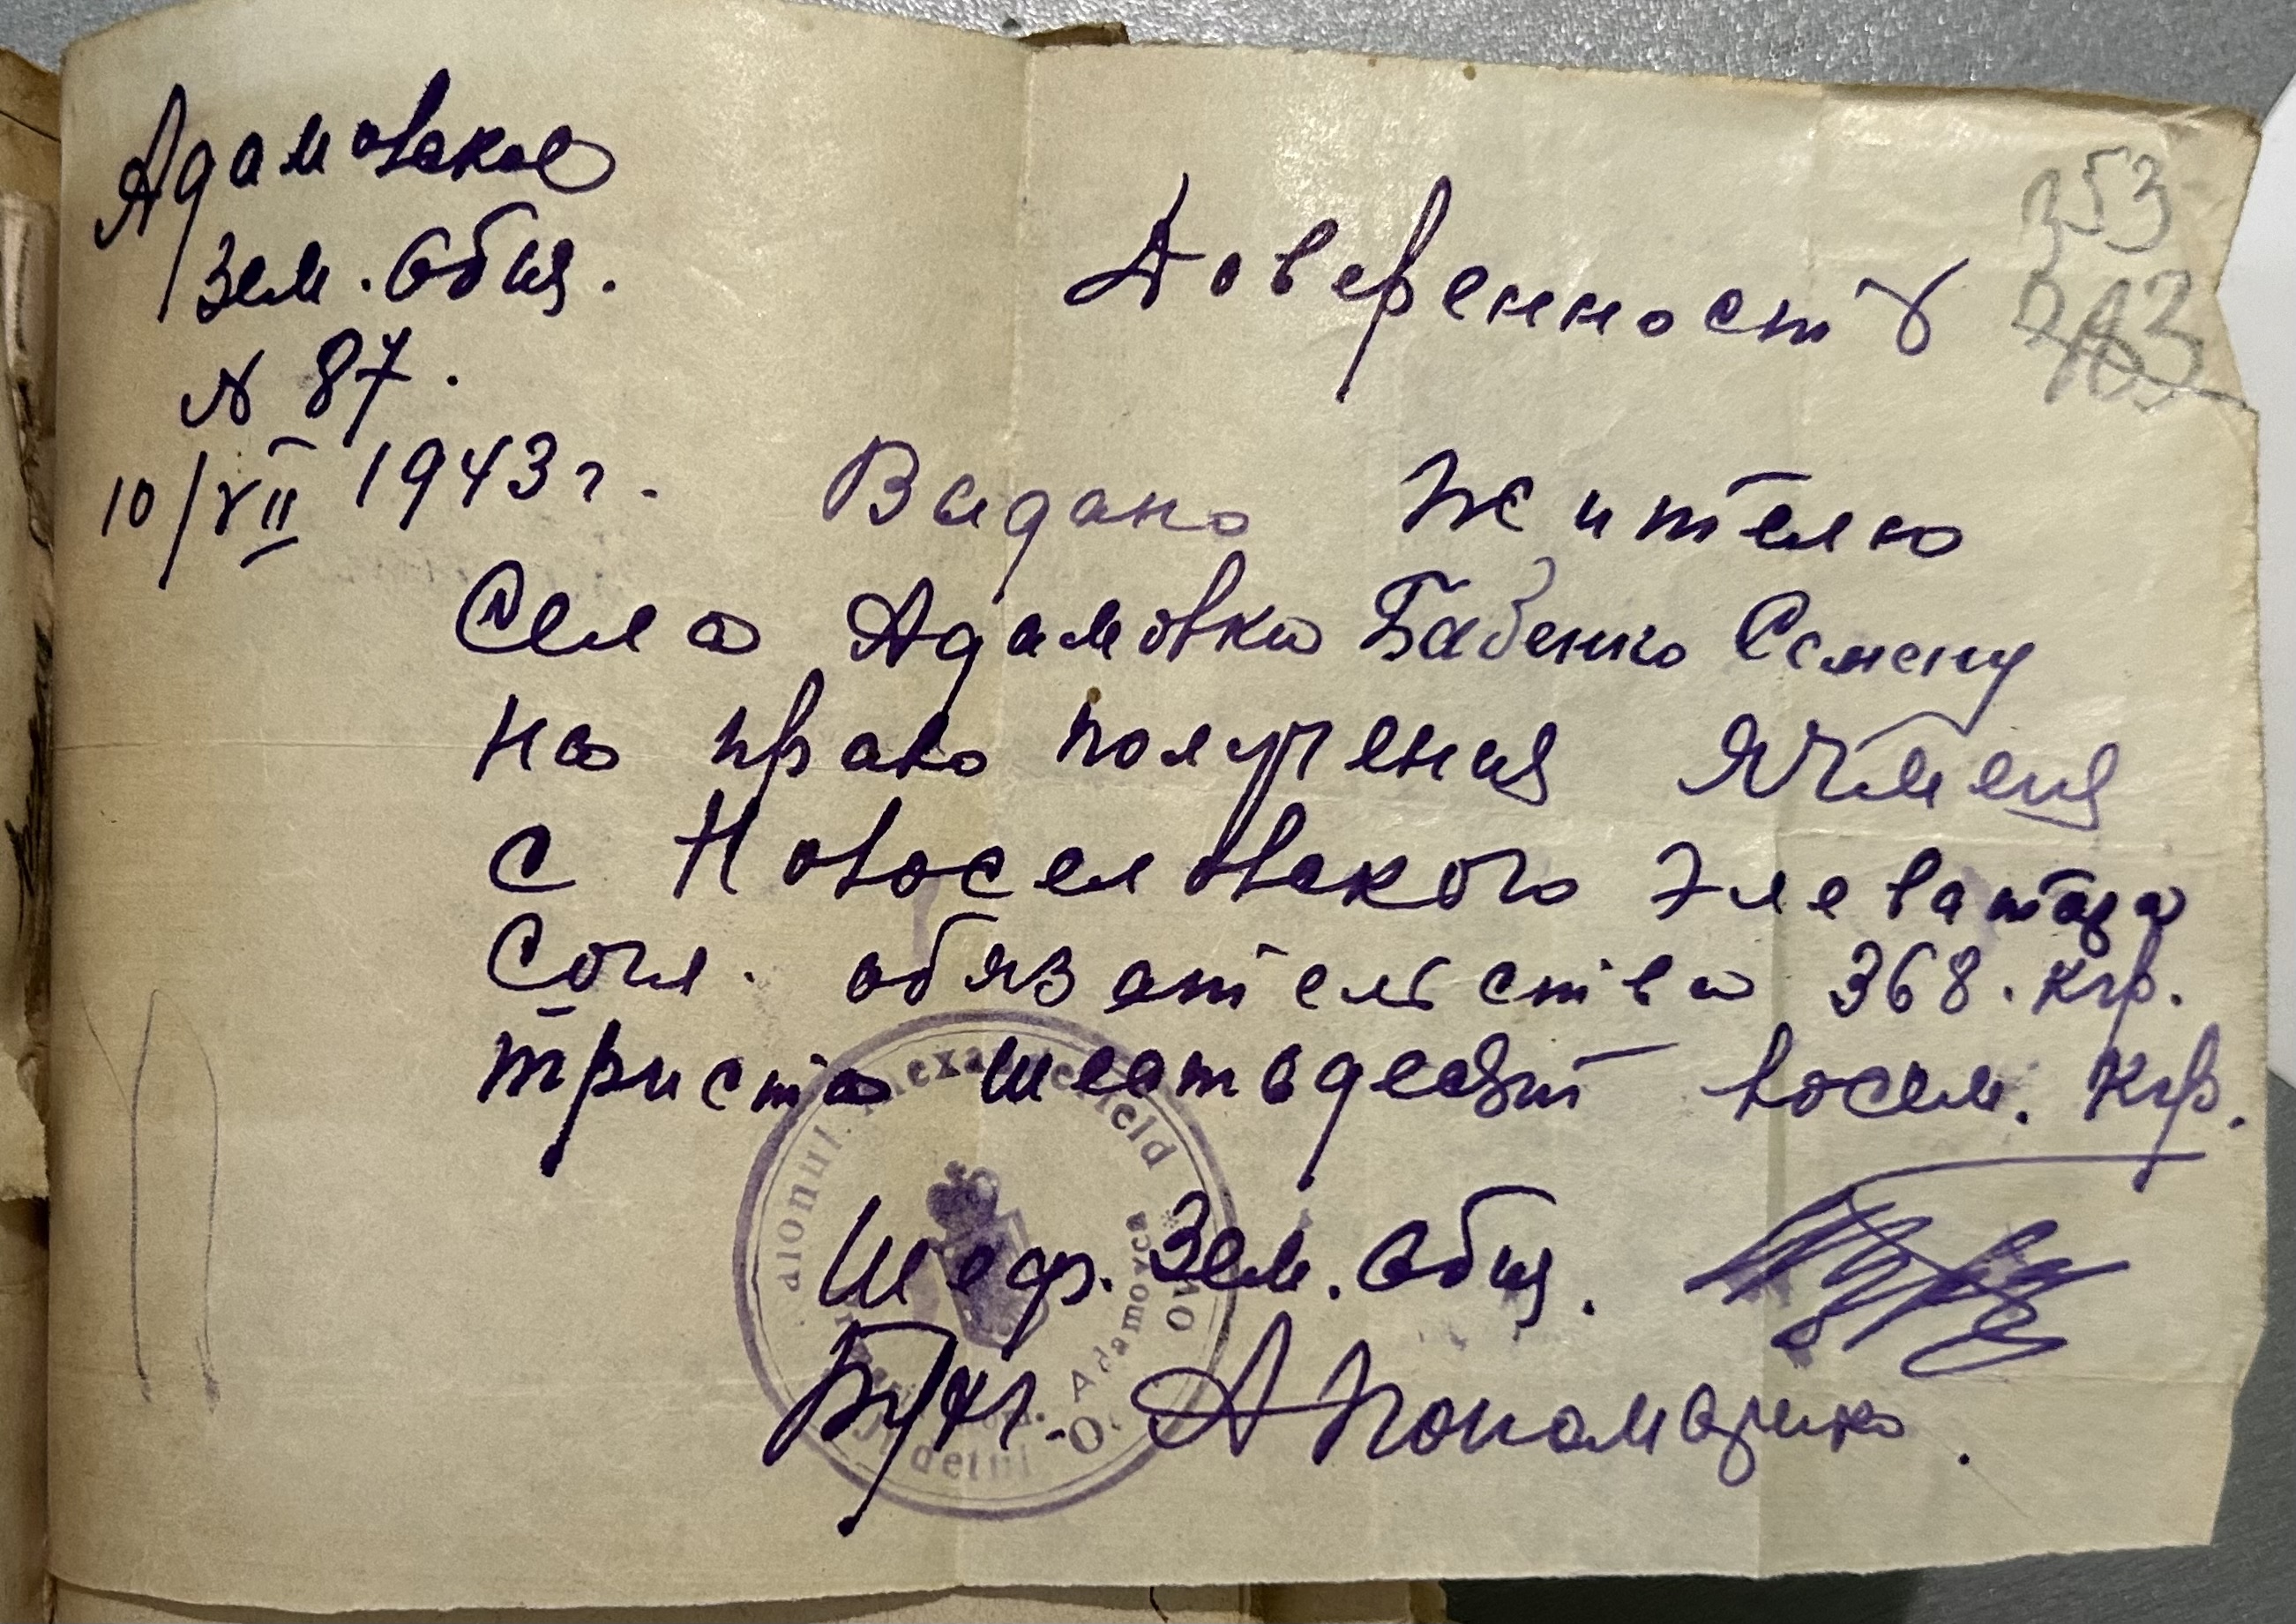 Адамовская
Зем. Общ.
N 87.
10/VII 1943 г.
353
Доверенность
Видано жителю
Села Адамовки Бабенко Семену
на право получения Ячменя
с Новоселовского элеватора
Согл. обязательства 368. кгр.
триста шестьдесят восем. кгр.
Шеф. Зем. Общ.
Бухг. А Пономаренко.
Raionul Alexanderfeld
Adamovca
Judetul Oceacov